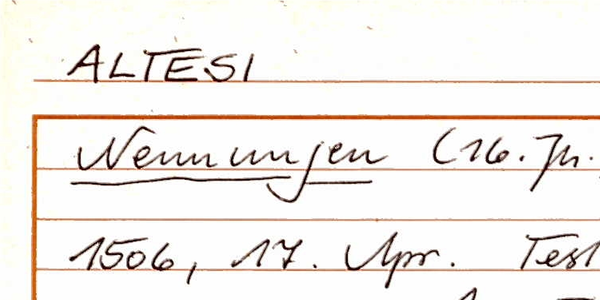 ALTESI
Nennungen (16. Jh.
1506, 17. Apr. Test